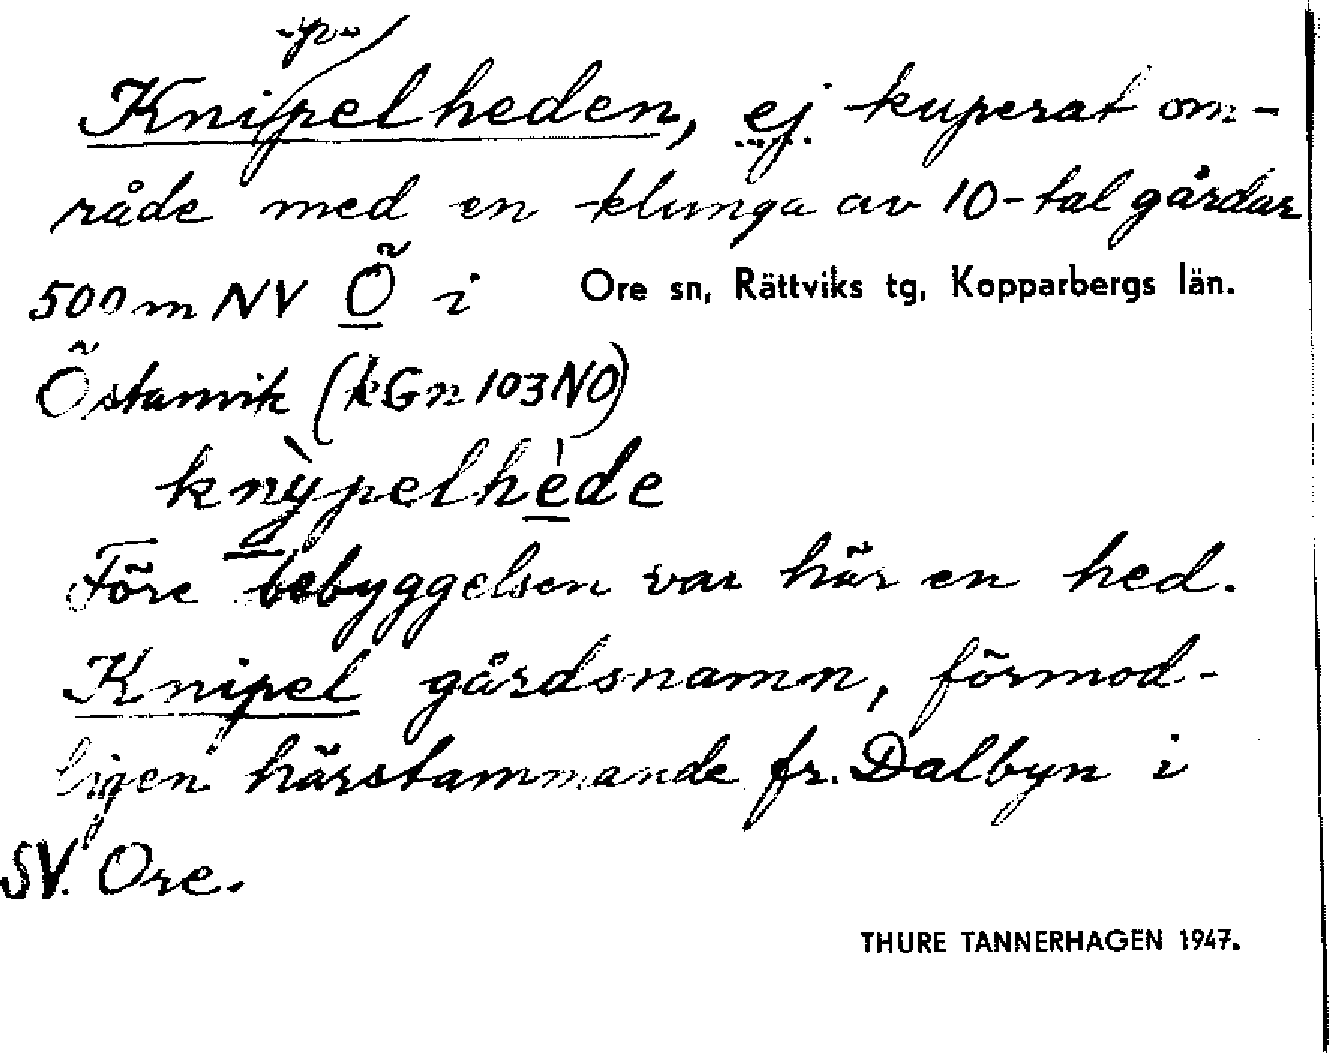 -p-
Knipelheden, ej kuperat om-
råde med en klunga av 10-tal gårdar
500 m NV Ö i Ore sn, Rättviks tg, Kopparbergs län.
Östanvik (kGn 103 NO)
knỳpelhède
Före bebyggelsen var här en hed.
Knipel gårdsnamn, förmod-
ligen härstammande fr. Dalbyn i
SV. Ore.
THURE TANNERHAGEN 1947.